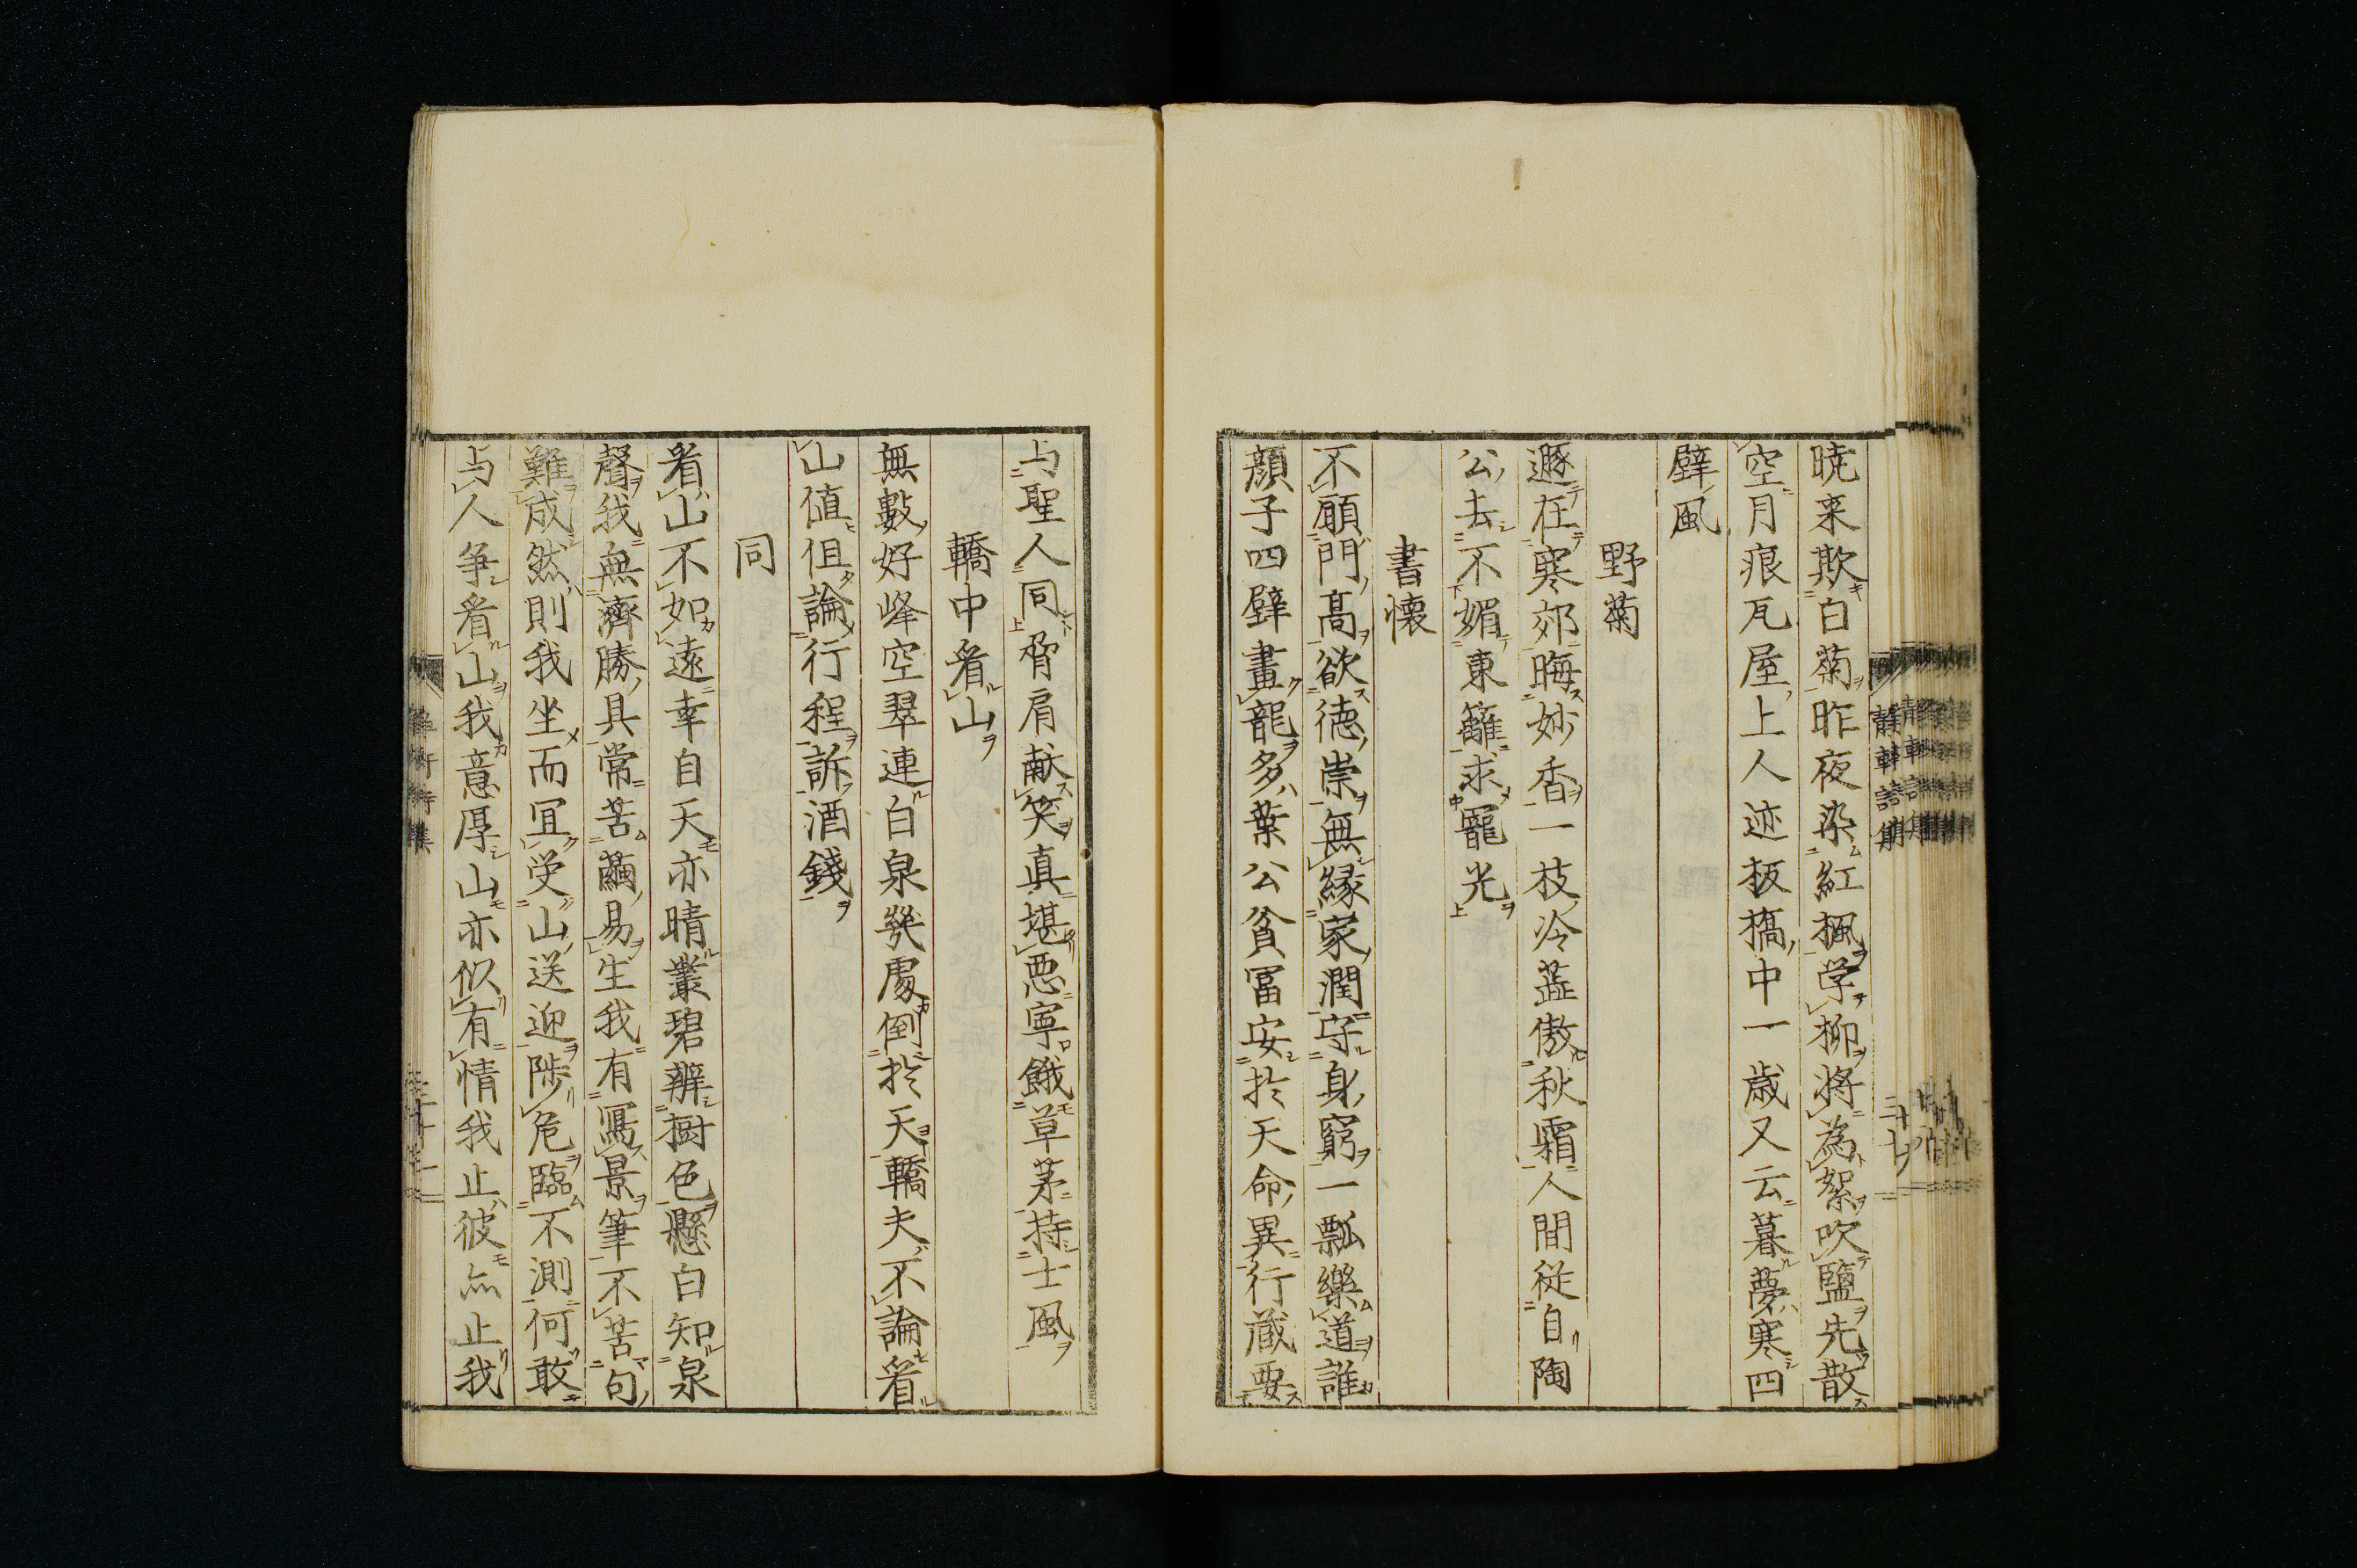 暁来欺白菊昨夜染紅楓学柳将為絮吹鹽先散
空月痕瓦屋上人迹板橋中一歳又云暮夢寒四
壁風
野菊
遯在寒郊晦妙香一枝冷蕋傲秋霜人間従自陶
公去不媚東籬求寵光
書懐
不願門高欲徳崇無縁家潤守身窮一瓢樂道誰
顔子四壁畫龍多葉公貧冨安於天命異行蔵要
与聖人同脅肩献笑真堪悪寧餓草茅持士風
轎中看山
無數好峰空翠連白泉幾處倒於天轎夫不論看
山値但論行程訴酒錢
同
看山不如遠幸自天亦晴叢碧辨樹色懸白知泉
聲我無濟勝具常苦繭易生我有寫景筆不苦句
難成然則我坐而冝受山送迎陟危臨不測何敢
与人争看山我意厚山亦似有情我止彼亦止我